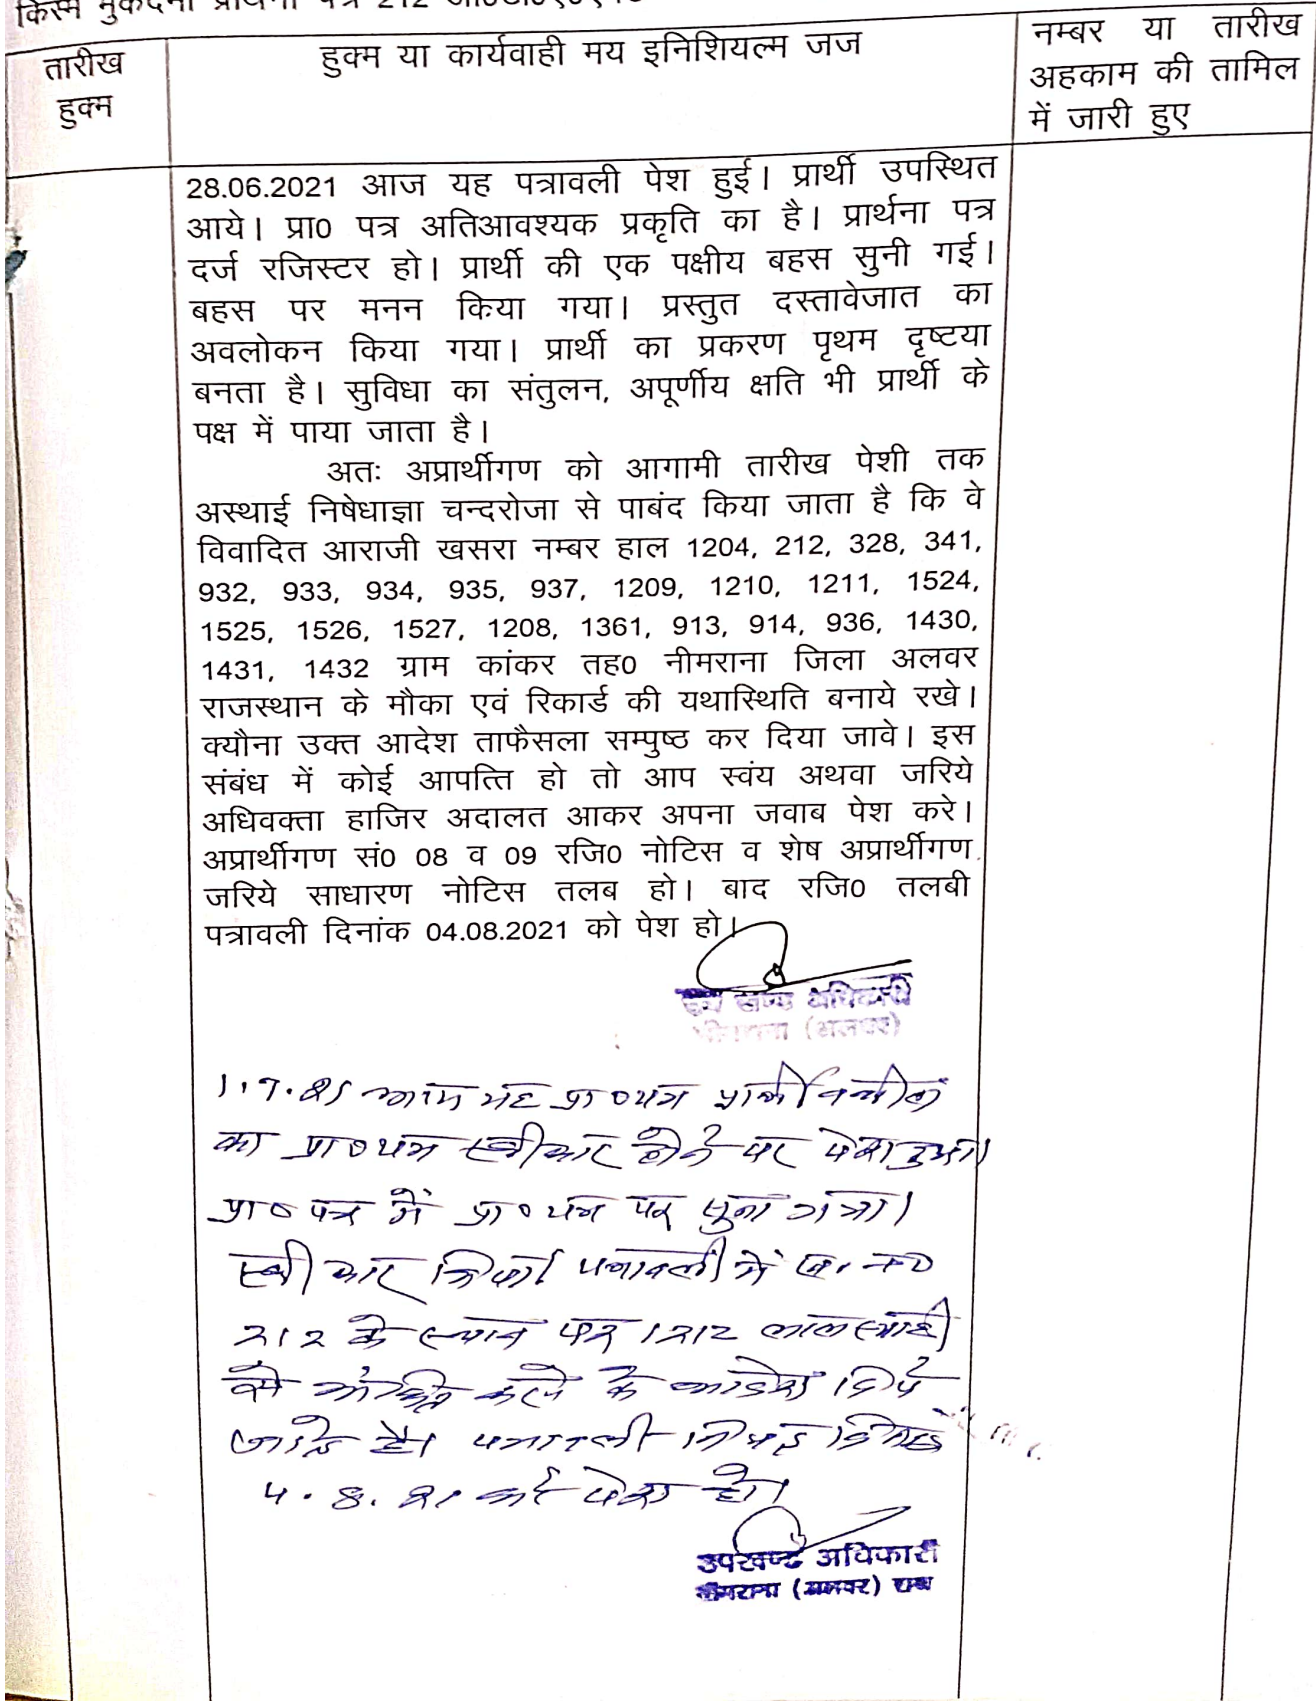 किस्म मुकदमा प्रार्थना पत्र 212
तारीख
हुक्म
हुक्म या कार्यवाही मय इनिशियल्म जज
नम्बर या तारीख
अहकाम की तामिल
में जारी हुए
28.06.2021 आज यह पत्रावली पेश हुई। प्रार्थी उपस्थित
आये। प्रा0 पत्र अतिआवश्यक प्रकृति का है। प्रार्थना पत्र
दर्ज रजिस्टर हो। प्रार्थी की एक पक्षीय बहस सुनी गई।
बहस पर मनन किया गया। प्रस्तुत दस्तावेजात का
अवलोकन किया गया। प्रार्थी का प्रकरण पृथम दृष्टया
बनता है। सुविधा का संतुलन, अपूर्णीय क्षति भी प्रार्थी के
पक्ष में पाया जाता है।
अतः अप्रार्थीगण को आगामी तारीख पेशी तक
अस्थाई निषेधाज्ञा चन्दरोजा से पाबंद किया जाता है कि वे
विवादित आराजी खसरा नम्बर हाल 1204, 212, 328, 341,
932, 933, 934, 935, 937, 1209, 1210, 1211, 1524,
1525, 1526, 1527, 1208, 1361, 913, 914, 936, 1430,
1431, 1432 ग्राम कांकर तह0 नीमराना जिला अलवर
राजस्थान के मौका एवं रिकार्ड की यथास्थिति बनाये रखे।
क्यौना उक्त आदेश ताफैसला सम्पुष्ठ कर दिया जावे। इस
संबंध में कोई आपत्ति हो तो आप स्वंय अथवा जरिये
अधिवक्ता हाजिर अदालत आकर अपना जवाब पेश करे।
अप्रार्थीगण सं0 08 व 09 रजि0 नोटिस व शेष अप्रार्थीगण
जरिये साधारण नोटिस तलब हो। बाद रजि0 तलबी
पत्रावली दिनांक 04.08.2021 को पेश हो।
उप खण्ड अधिकारी
नीमराना (अलवर)
1.7.21 आज यह प्रा०पत्र प्रार्थी वकील
का प्रा०पत्र स्वीकार होने पर पेश हुआ।
प्रा०पत्र में प्रा०पत्र पर सुना गया।
स्वीकार किया। पत्रावली में ख. न०
212 के स्थान पर 1212 लाल स्याही
से अंकित करने के आदेश दिये
जाते है। पत्रावली नियत दिनांक
4.8.21 को पेश हो।
उपखण्ड अधिकारी
नीमराना (अलवर) राज